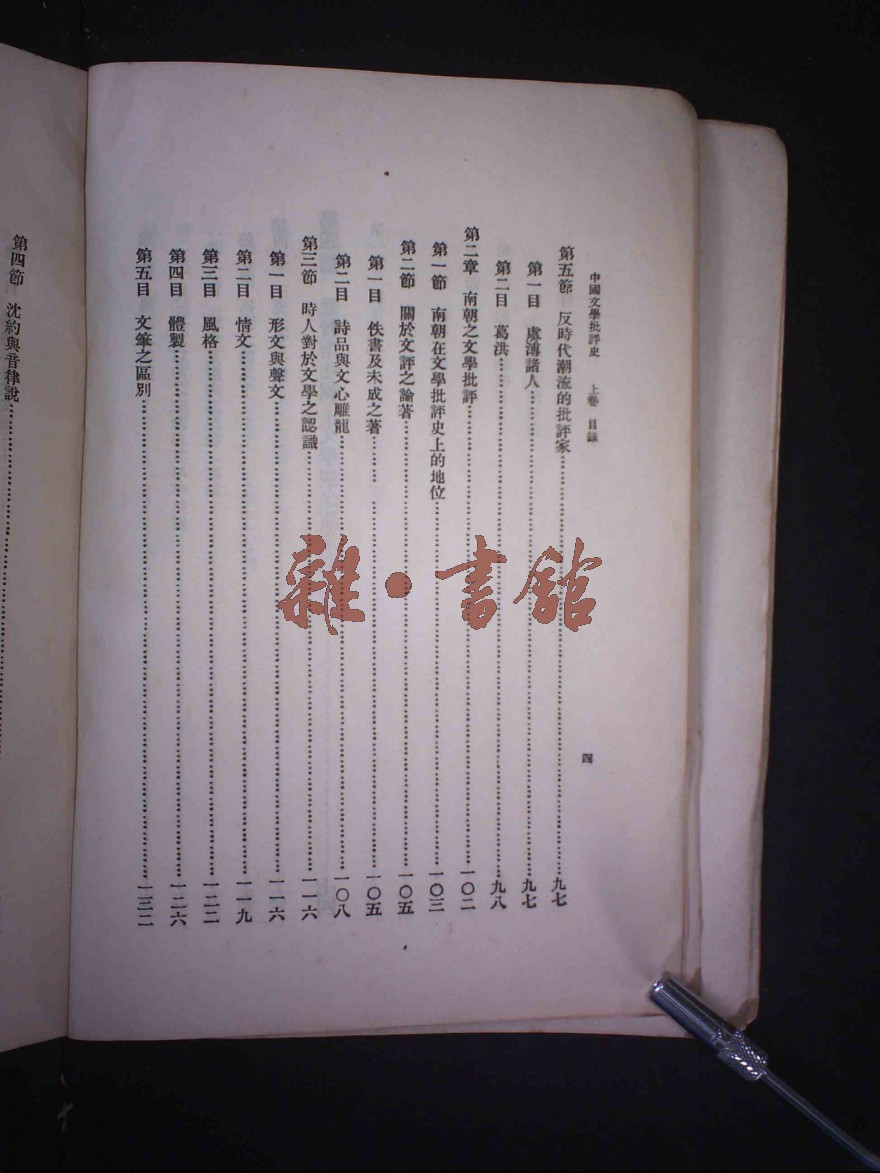 中國文學批評史　上卷　目錄
四
第五節　反時代潮流的批評家……九七
第一目　虞溥諸人……九七
第二目　葛洪……九八
第二章　南朝之文學批評……一〇二
第一節　南朝在文學批評史上的地位……一〇三
第二節　關於文評之論著……一〇五
第一目　佚書及未成之著……一〇五
第二目　詩品與文心雕龍……一〇八
第三節　時人對於文學之認識……一一六
第一目　形文與聲文……一一六
第二目　情文……一一九
第三目　風格……一二二
第四目　體製……一二六
第五目　文筆之區別……一三二
第四節　沈約與音律說……
雜·書館